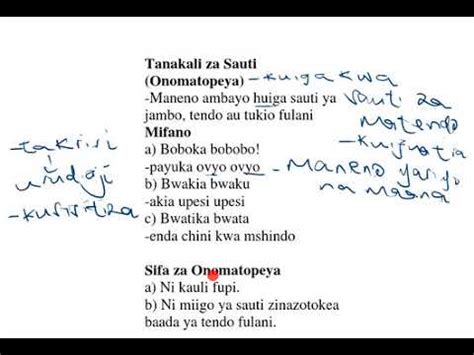 Tanakali za Sauti
(Onomatopeya) - kuiga kwa
-Maneno ambayo huiga sauti ya sauti za
jambo, tendo au tukio fulani matendo
Mifano - kufuatia
a) Boboka bobobo!
-payuka ovyo ovyo - maneno yasiyo
b) Bwakia bwaku na maana
-akia upesi upesi
c) Bwatika bwata
-enda chini kwa mshindo
- takriri
urudiaji
- kusisitiza
Sifa za Onomatopeya
a) Ni kauli fupi.
b) Ni miigo ya sauti zinazotokea
baada ya tendo fulani.